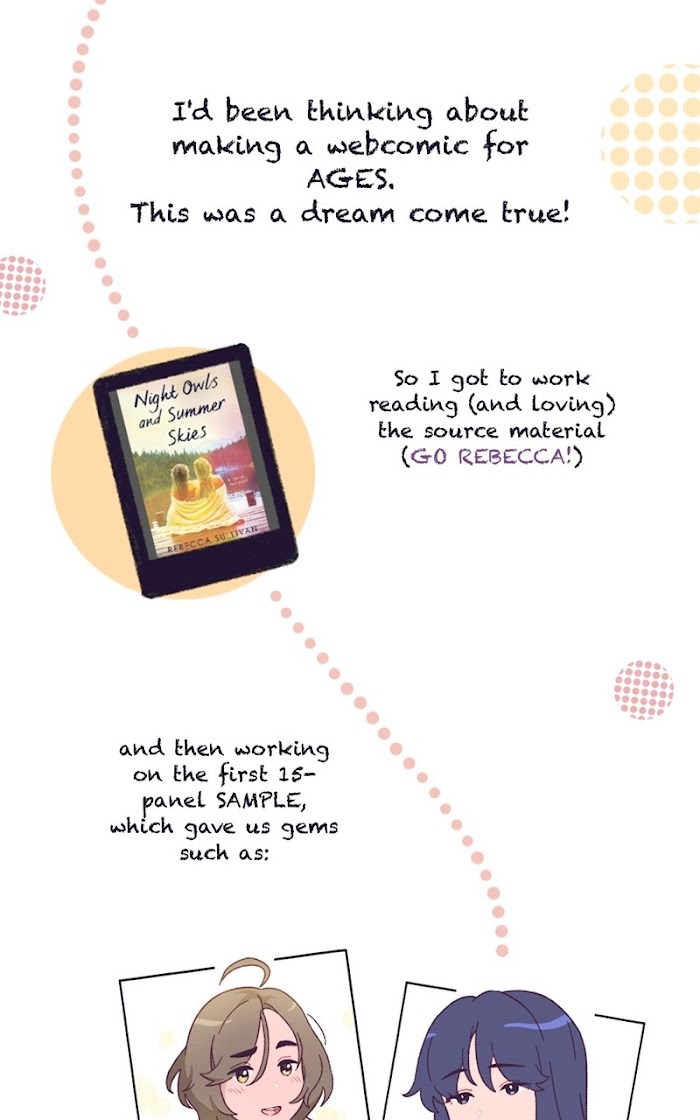 I'd been thinking about
making a webcomic for
AGES.
This was a dream come true!
Night Owls
and Summer
Skies
REBECCA SULLIVAN
So I got to work
reading (and loving)
the source material
(GO REBECCA!)
and then working
on the first 15-
panel SAMPLE,
which gave us gems
such as: